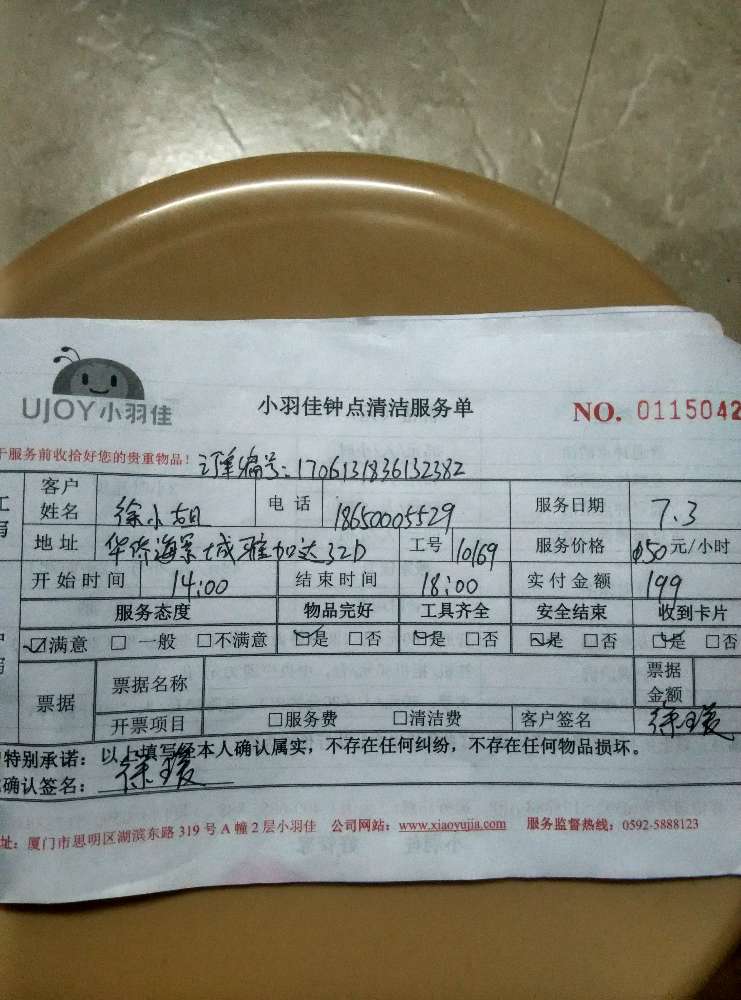 UJOY小羽佳
小羽佳钟点清洁服务单
NO. 0115042
于服务前收拾好您的贵重物品! 订单编号:1706131836132382
客户姓名 徐小姐 电话 18650005529 服务日期 7.3
地址 华际海景城雅加达32D 工号 10169 服务价格 50元/小时
开始时间 14:00 结束时间 18:00 实付金额 199
服务态度 物品完好 工具齐全 安全结束 收到卡片
☑满意 □一般 □不满意 ☑是 □否 ☑是 □否 ☑是 □否 ☑是 □否
票据 票据名称 票据金额
开票项目 □服务费 □清洁费 客户签名 徐瑷
特别承诺:以上填写经本人确认属实,不存在任何纠纷,不存在任何物品损坏。
确认签名: 徐瑷
址:厦门市思明区湖滨东路319号A幢2层小羽佳 公司网站:www.xiaoyujia.com 服务监督热线:0592-5888123